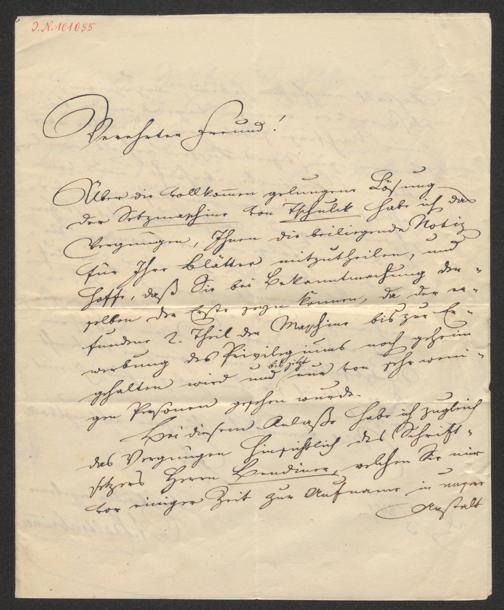 J.N. 101055
Verehrter Freund!
Über die vollkommen gelungene Lösung
der Setzmaschine von Tschulik habe ich das
Vergnügen, Ihnen die beiliegende Notiz
für Ihre Blätter mitzutheilen, und
hoffe, daß Sie bei Bekanntmachung der-
selben der Erste seyn können, da der er-
fundene 2. Theil der Maschine bis zur Er-
werbung des Privilegiums noch geheim
gehalten wird und bis jetzt nur von sehr weni-
gen Personen gesehen wurde.
Bei diesem Anlaße habe ich zugleich
das Vergnügen hinsichtlich des Schrift-
setzers Herrn Bendiner, welchen Sie mir
vor einiger Zeit zur Aufname in unsere
Anstalt